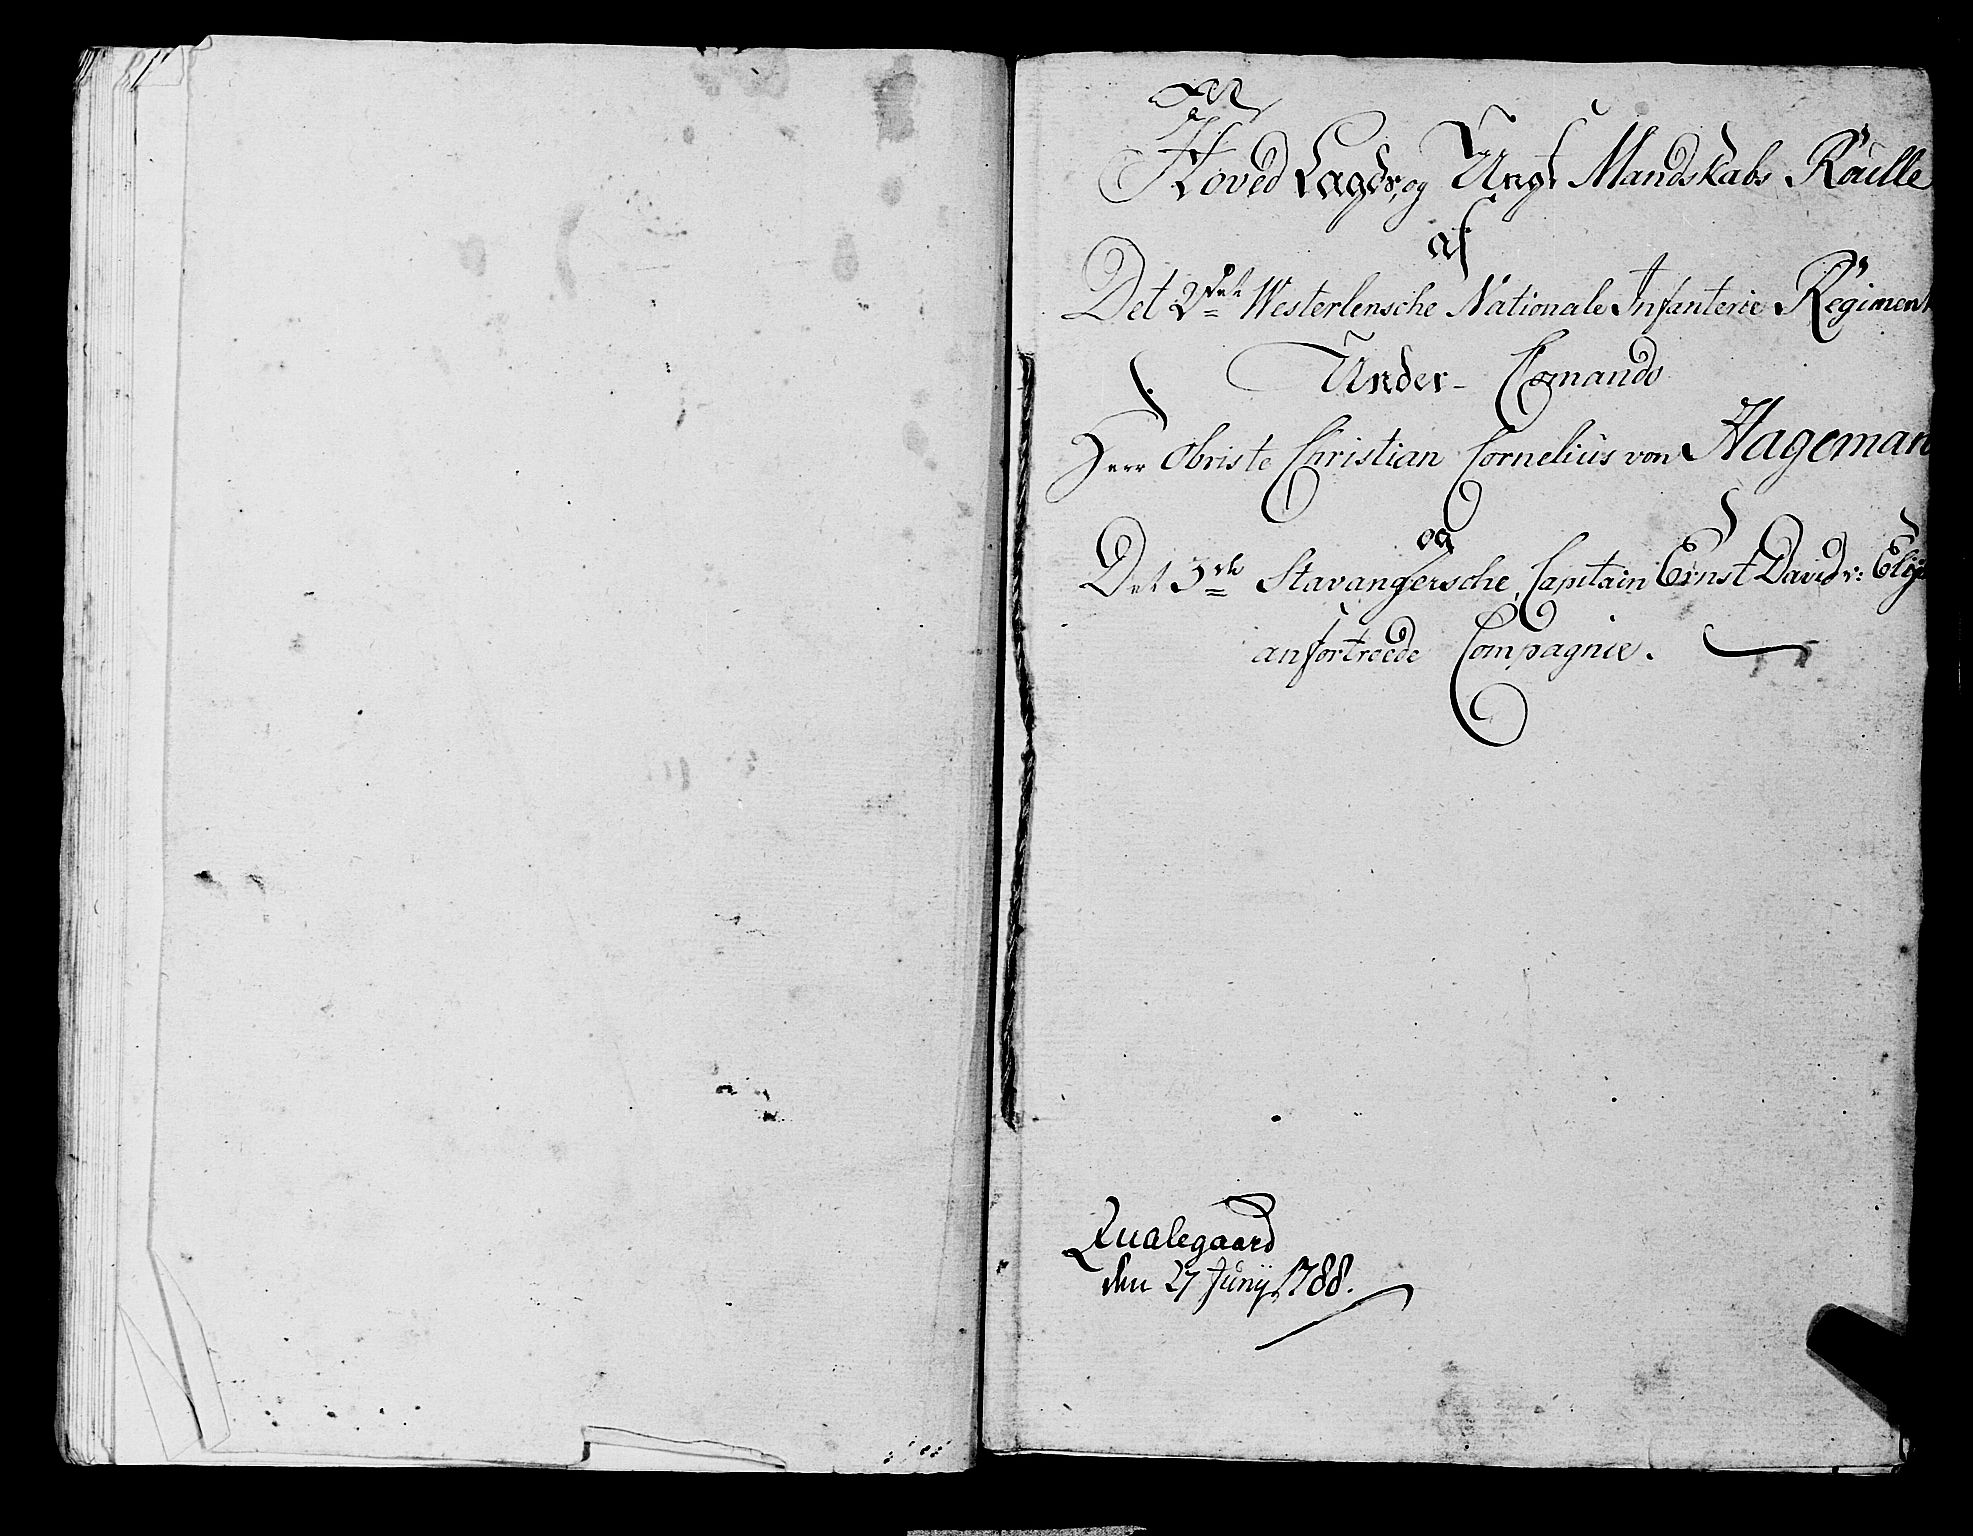 Hoved Lægds, og Ungt Mandskabs Roulle
af
Det 2det Westerlensche Nationale Infanterie Regiment
Under Comando
Herr Obriste Christian Cornelius von Hageman
og
Det 3die Stavangersche, Capitain Ernst David v:
anfortroede Compagnie.
Qualegaard
den 27 Junij 1788.